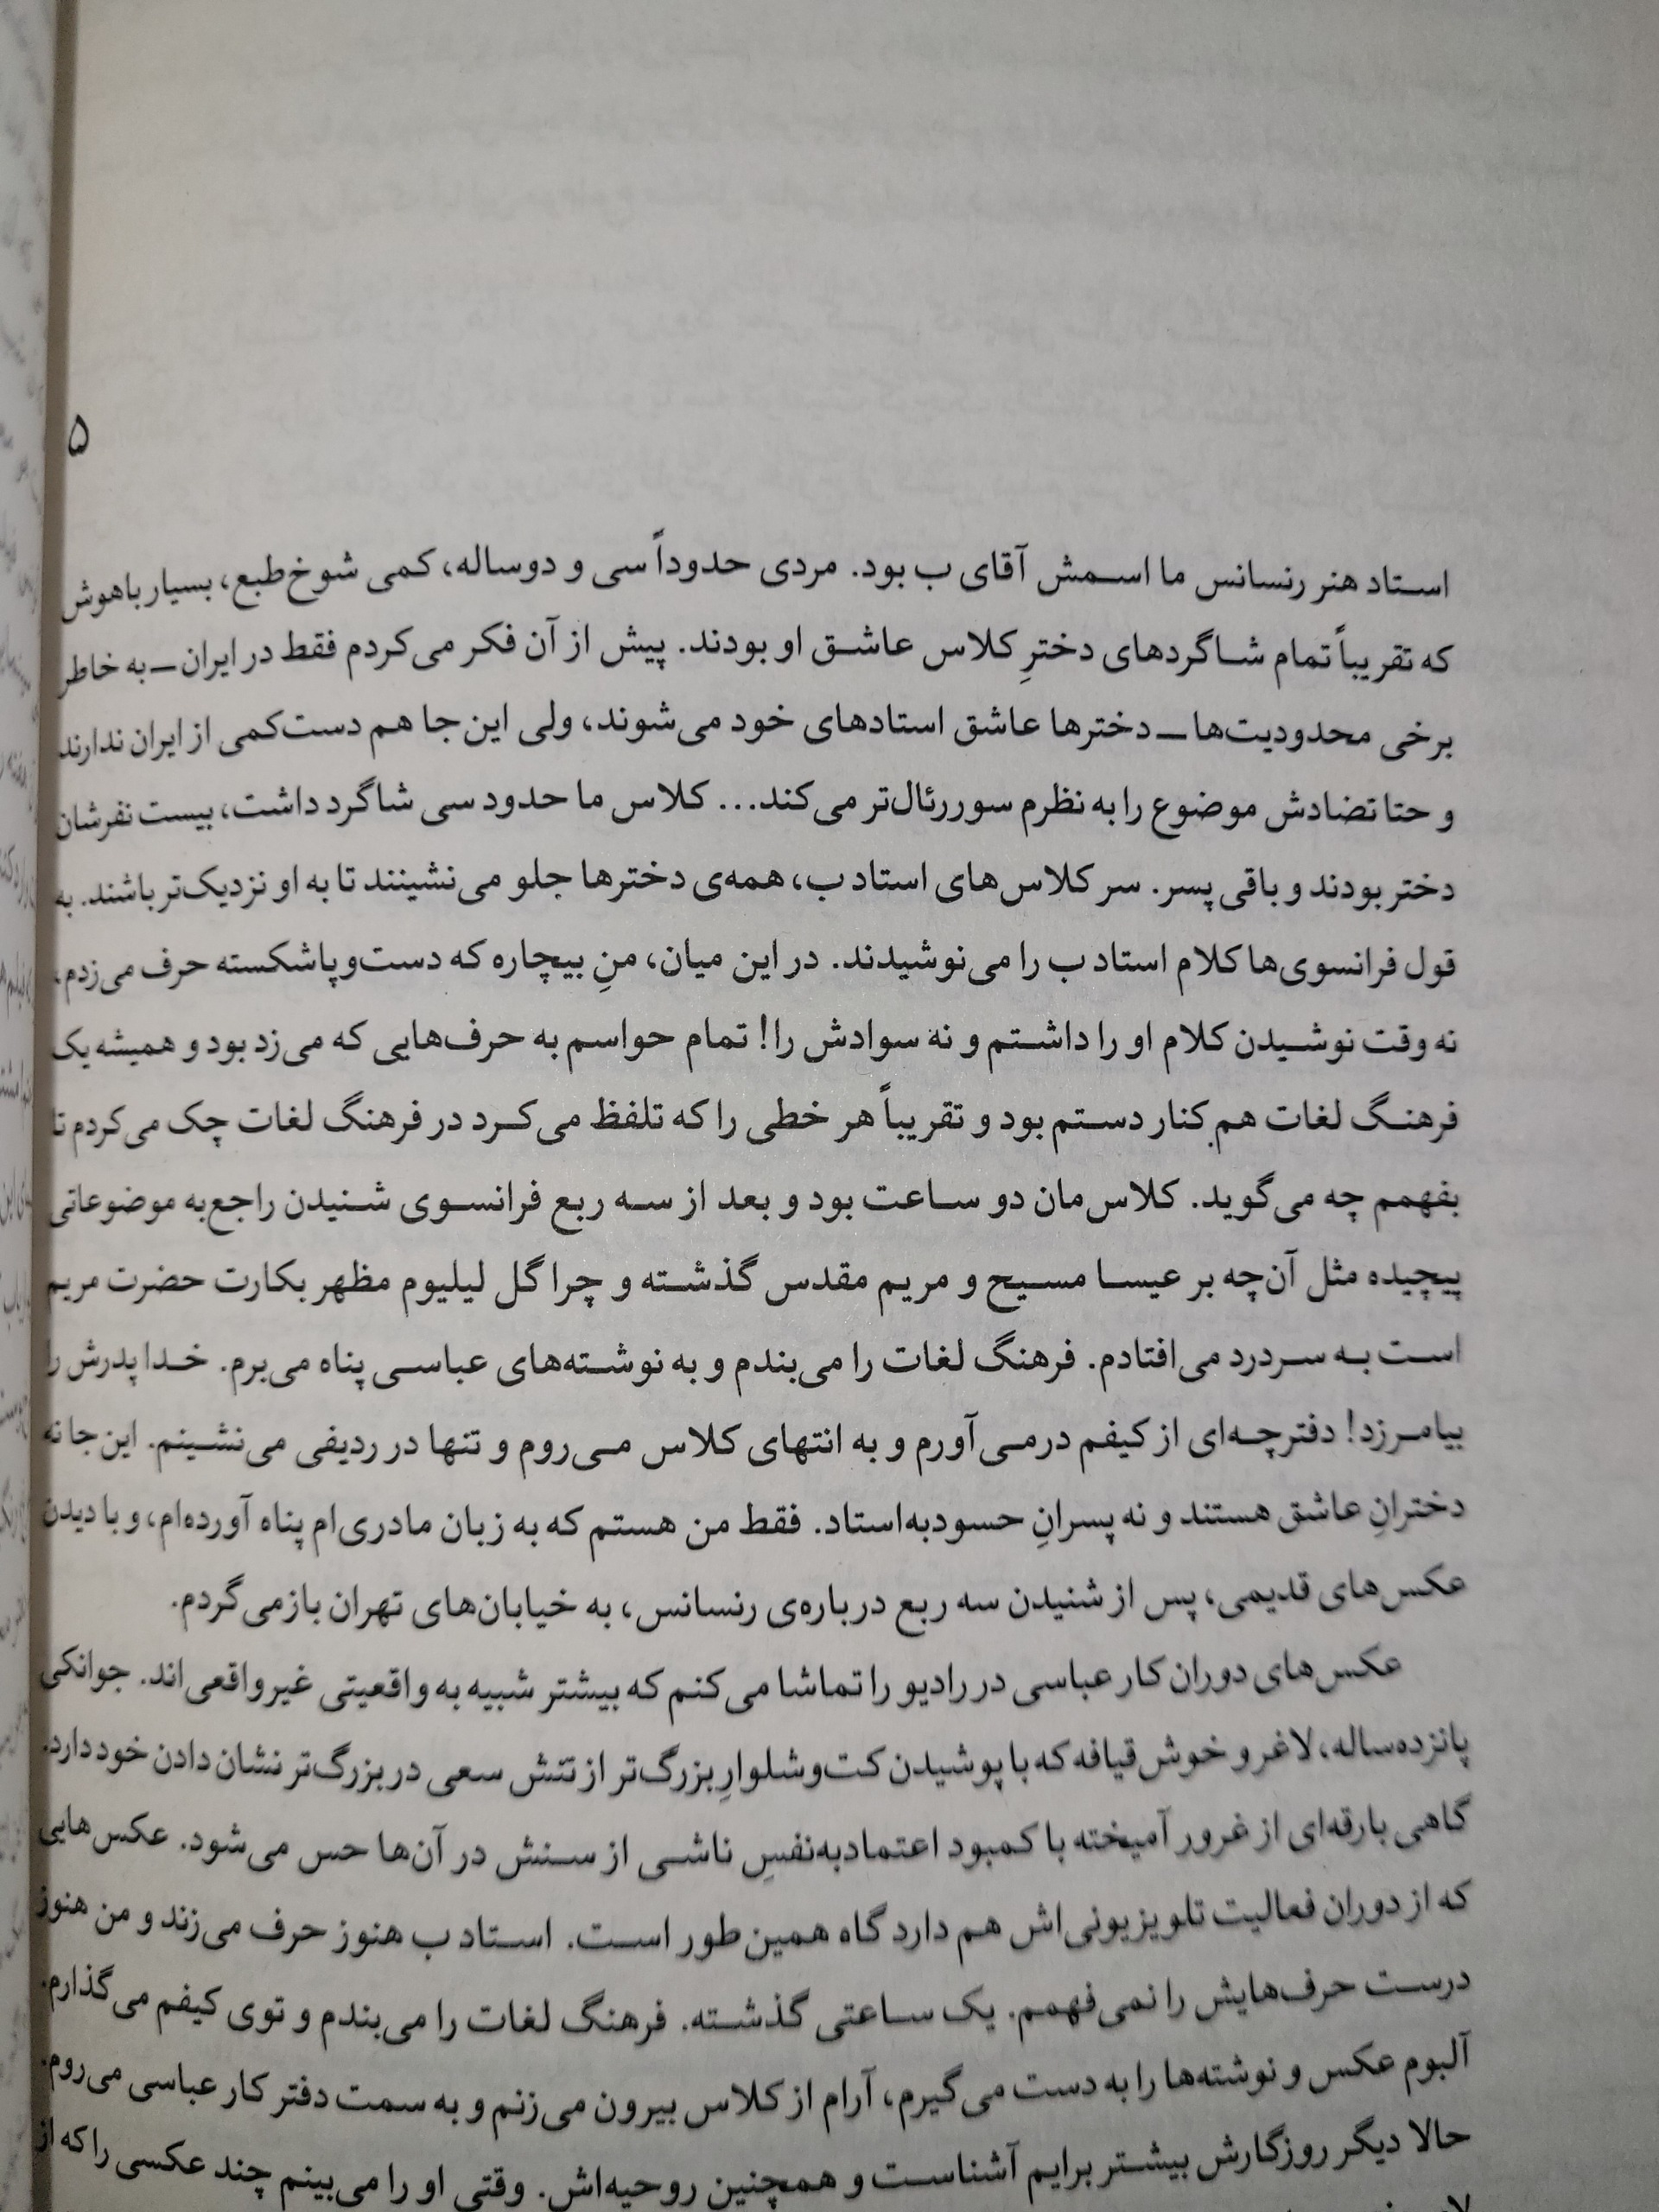 ۵
استاد هنر رنسانس ما اسمش آقای ب بود. مردی حدوداً سی و دوساله، کمی شوخ‌طبع، بسیار باهوش
که تقریباً تمام شاگردهای دخترِ کلاس عاشق او بودند. پیش از آن فکر می‌کردم فقط در ایران ــ به خاطر
برخی محدودیت‌ها ــ دخترها عاشق استادهای خود می‌شوند، ولی این‌جا هم دست‌کمی از ایران ندارند
و حتا تضادش موضوع را به نظرم سوررئال‌تر می‌کند... کلاس ما حدود سی شاگرد داشت، بیست نفرشان
دختر بودند و باقی پسر. سر کلاس‌های استاد ب، همه‌ی دخترها جلو می‌نشینند تا به او نزدیک‌تر باشند. به
قول فرانسوی‌ها کلام استاد ب را می‌نوشیدند. در این میان، منِ بیچاره که دست‌وپاشکسته حرف می‌زدم،
نه وقت نوشیدن کلام او را داشتم و نه سوادش را! تمام حواسم به حرف‌هایی که می‌زد بود و همیشه یک
فرهنگ لغات هم کنار دستم بود و تقریباً هر خطی را که تلفظ می‌کرد در فرهنگ لغات چک می‌کردم تا
بفهمم چه می‌گوید. کلاس‌مان دو ساعت بود و بعد از سه ربع فرانسوی شنیدن راجع‌به موضوعاتی
پیچیده مثل آن‌چه بر عیسا مسیح و مریم مقدس گذشته و چرا گل لیلیوم مظهر بکارت حضرت مریم
است به سردرد می‌افتادم. فرهنگ لغات را می‌بندم و به نوشته‌های عباسی پناه می‌برم. خدا پدرش را
بیامرزد! دفترچه‌ای از کیفم درمی‌آورم و به انتهای کلاس می‌روم و تنها در ردیفی می‌نشینم. این‌جا نه
دخترانِ عاشق هستند و نه پسرانِ حسودبه‌استاد. فقط من هستم که به زبان مادری‌ام پناه آورده‌ام، و با دیدن
عکس‌های قدیمی، پس از شنیدن سه ربع درباره‌ی رنسانس، به خیابان‌های تهران بازمی‌گردم.
عکس‌های دوران کار عباسی در رادیو را تماشا می‌کنم که بیشتر شبیه به واقعیتی غیرواقعی‌اند. جوانکی
پانزده‌ساله، لاغر و خوش‌قیافه که با پوشیدن کت‌وشلوارِ بزرگ‌تر از تنش سعی در بزرگ‌تر نشان دادن خود دارد.
گاهی بارقه‌ای از غرور آمیخته با کمبود اعتمادبه‌نفسِ ناشی از سنش در آن‌ها حس می‌شود. عکس‌هایی
که از دوران فعالیت تلویزیونی‌اش هم دارد گاه همین‌طور است. استاد ب هنوز حرف می‌زند و من هنوز
درست حرف‌هایش را نمی‌فهمم. یک ساعتی گذشته. فرهنگ لغات را می‌بندم و توی کیفم می‌گذارم.
آلبوم عکس و نوشته‌ها را به دست می‌گیرم، آرام از کلاس بیرون می‌زنم و به سمت دفتر کار عباسی می‌روم.
حالا دیگر روزگارش بیشتر برایم آشناست و همچنین روحیه‌اش. وقتی او را می‌بینم چند عکسی را که از